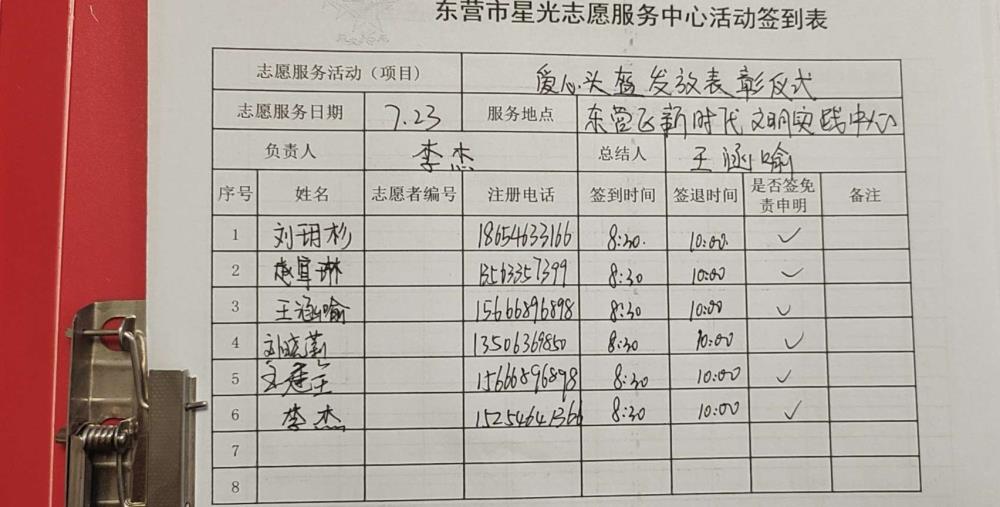 东营市星光志愿服务中心活动签到表
志愿服务活动（项目） 爱心头盔发放表彰仪式
志愿服务日期 7.23 服务地点 东营区新时代文明实践中心
负责人 李杰 总结人 王涵喻
序号 姓名 志愿者编号 注册电话 签到时间 签退时间 是否签免责申明 备注
1 刘玥杉 18654633166 8:30. 10:00. ✓
2 13563357399 8:30 10:00 ✓
3 王涵喻 15666896898 8:30 10:00 ✓
4 13506369850 8:30 10:00 ✓
5 15666896898 8:30 10:00 ✓
6 李杰 15254641366 8:30 10:00 ✓
7
8